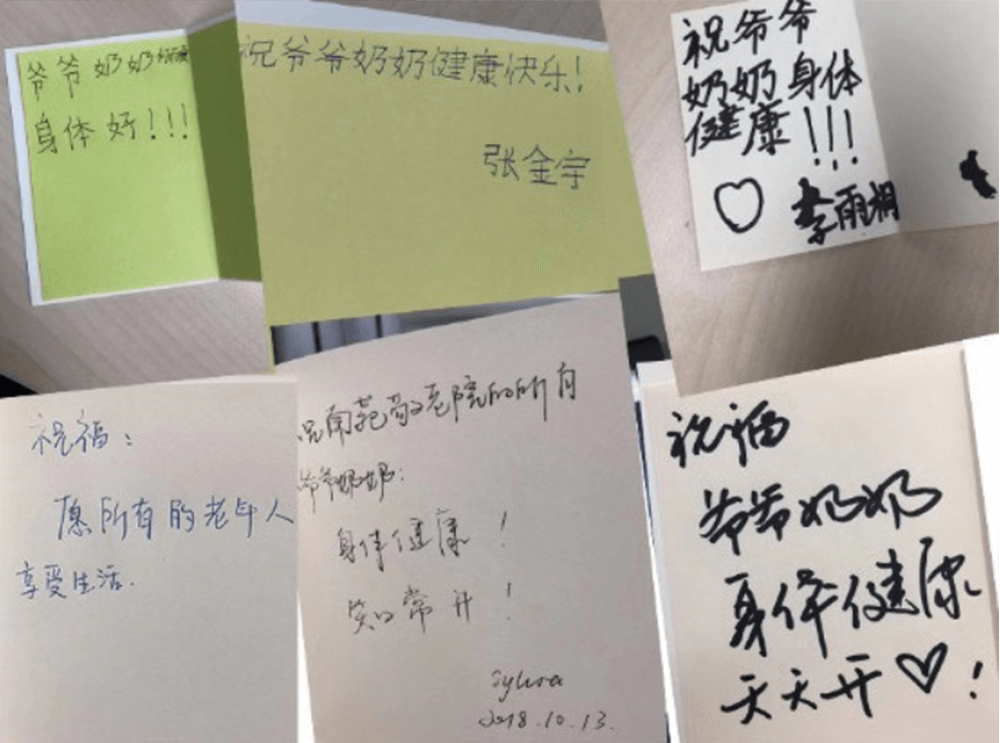 爷爷奶奶
身体好!!!
祝爷爷奶奶健康快乐!
张金宇
祝爷爷
奶奶身体
健康!!!
李雨桐
祝福:
愿所有的老年人
享受生活.
祝南苑敬老院的所有
爷爷奶奶:
身体健康!
笑口常开!
2018.10.13.
祝福
爷爷奶奶
身体健康
天天开♡!